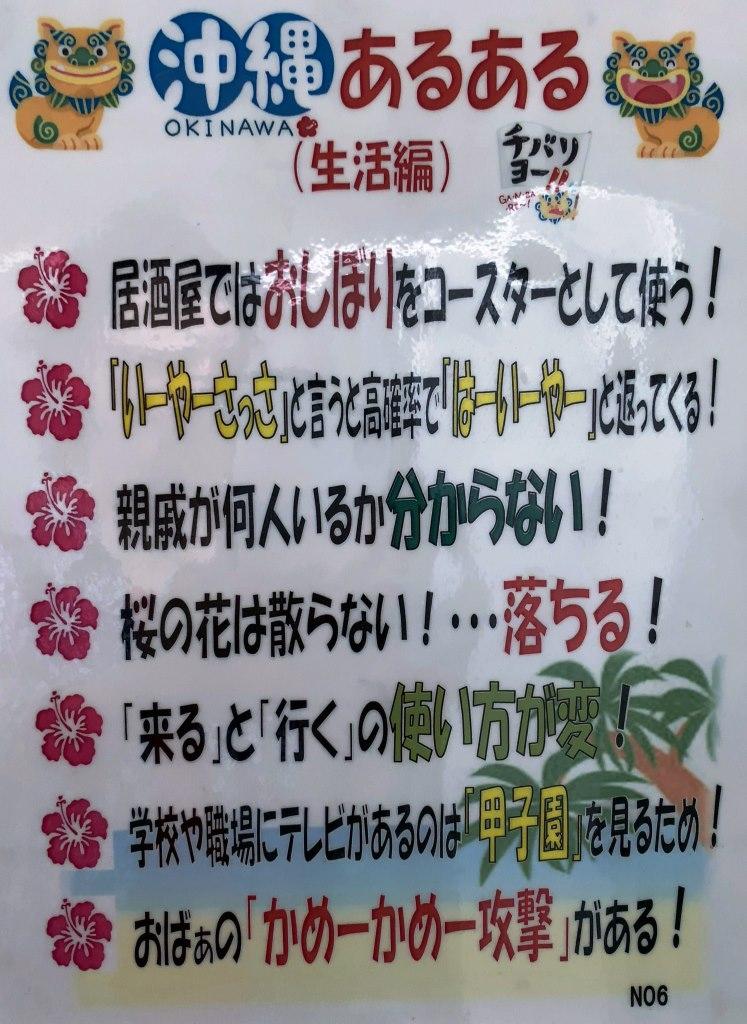 沖縄あるある
OKINAWA
(生活編)
チバリ
ヨー!!
GA・N・BA
・RE〜!
居酒屋ではおしぼりをコースターとして使う!
「いーやーさっさ」と言うと高確率で「はーいーやー」と返ってくる!
親戚が何人いるか分からない!
桜の花は散らない!…落ちる!
「来る」と「行く」の使い方が変!
学校や職場にテレビがあるのは「甲子園」を見るため!
おばぁの「かめーかめー攻撃」がある!
NO6